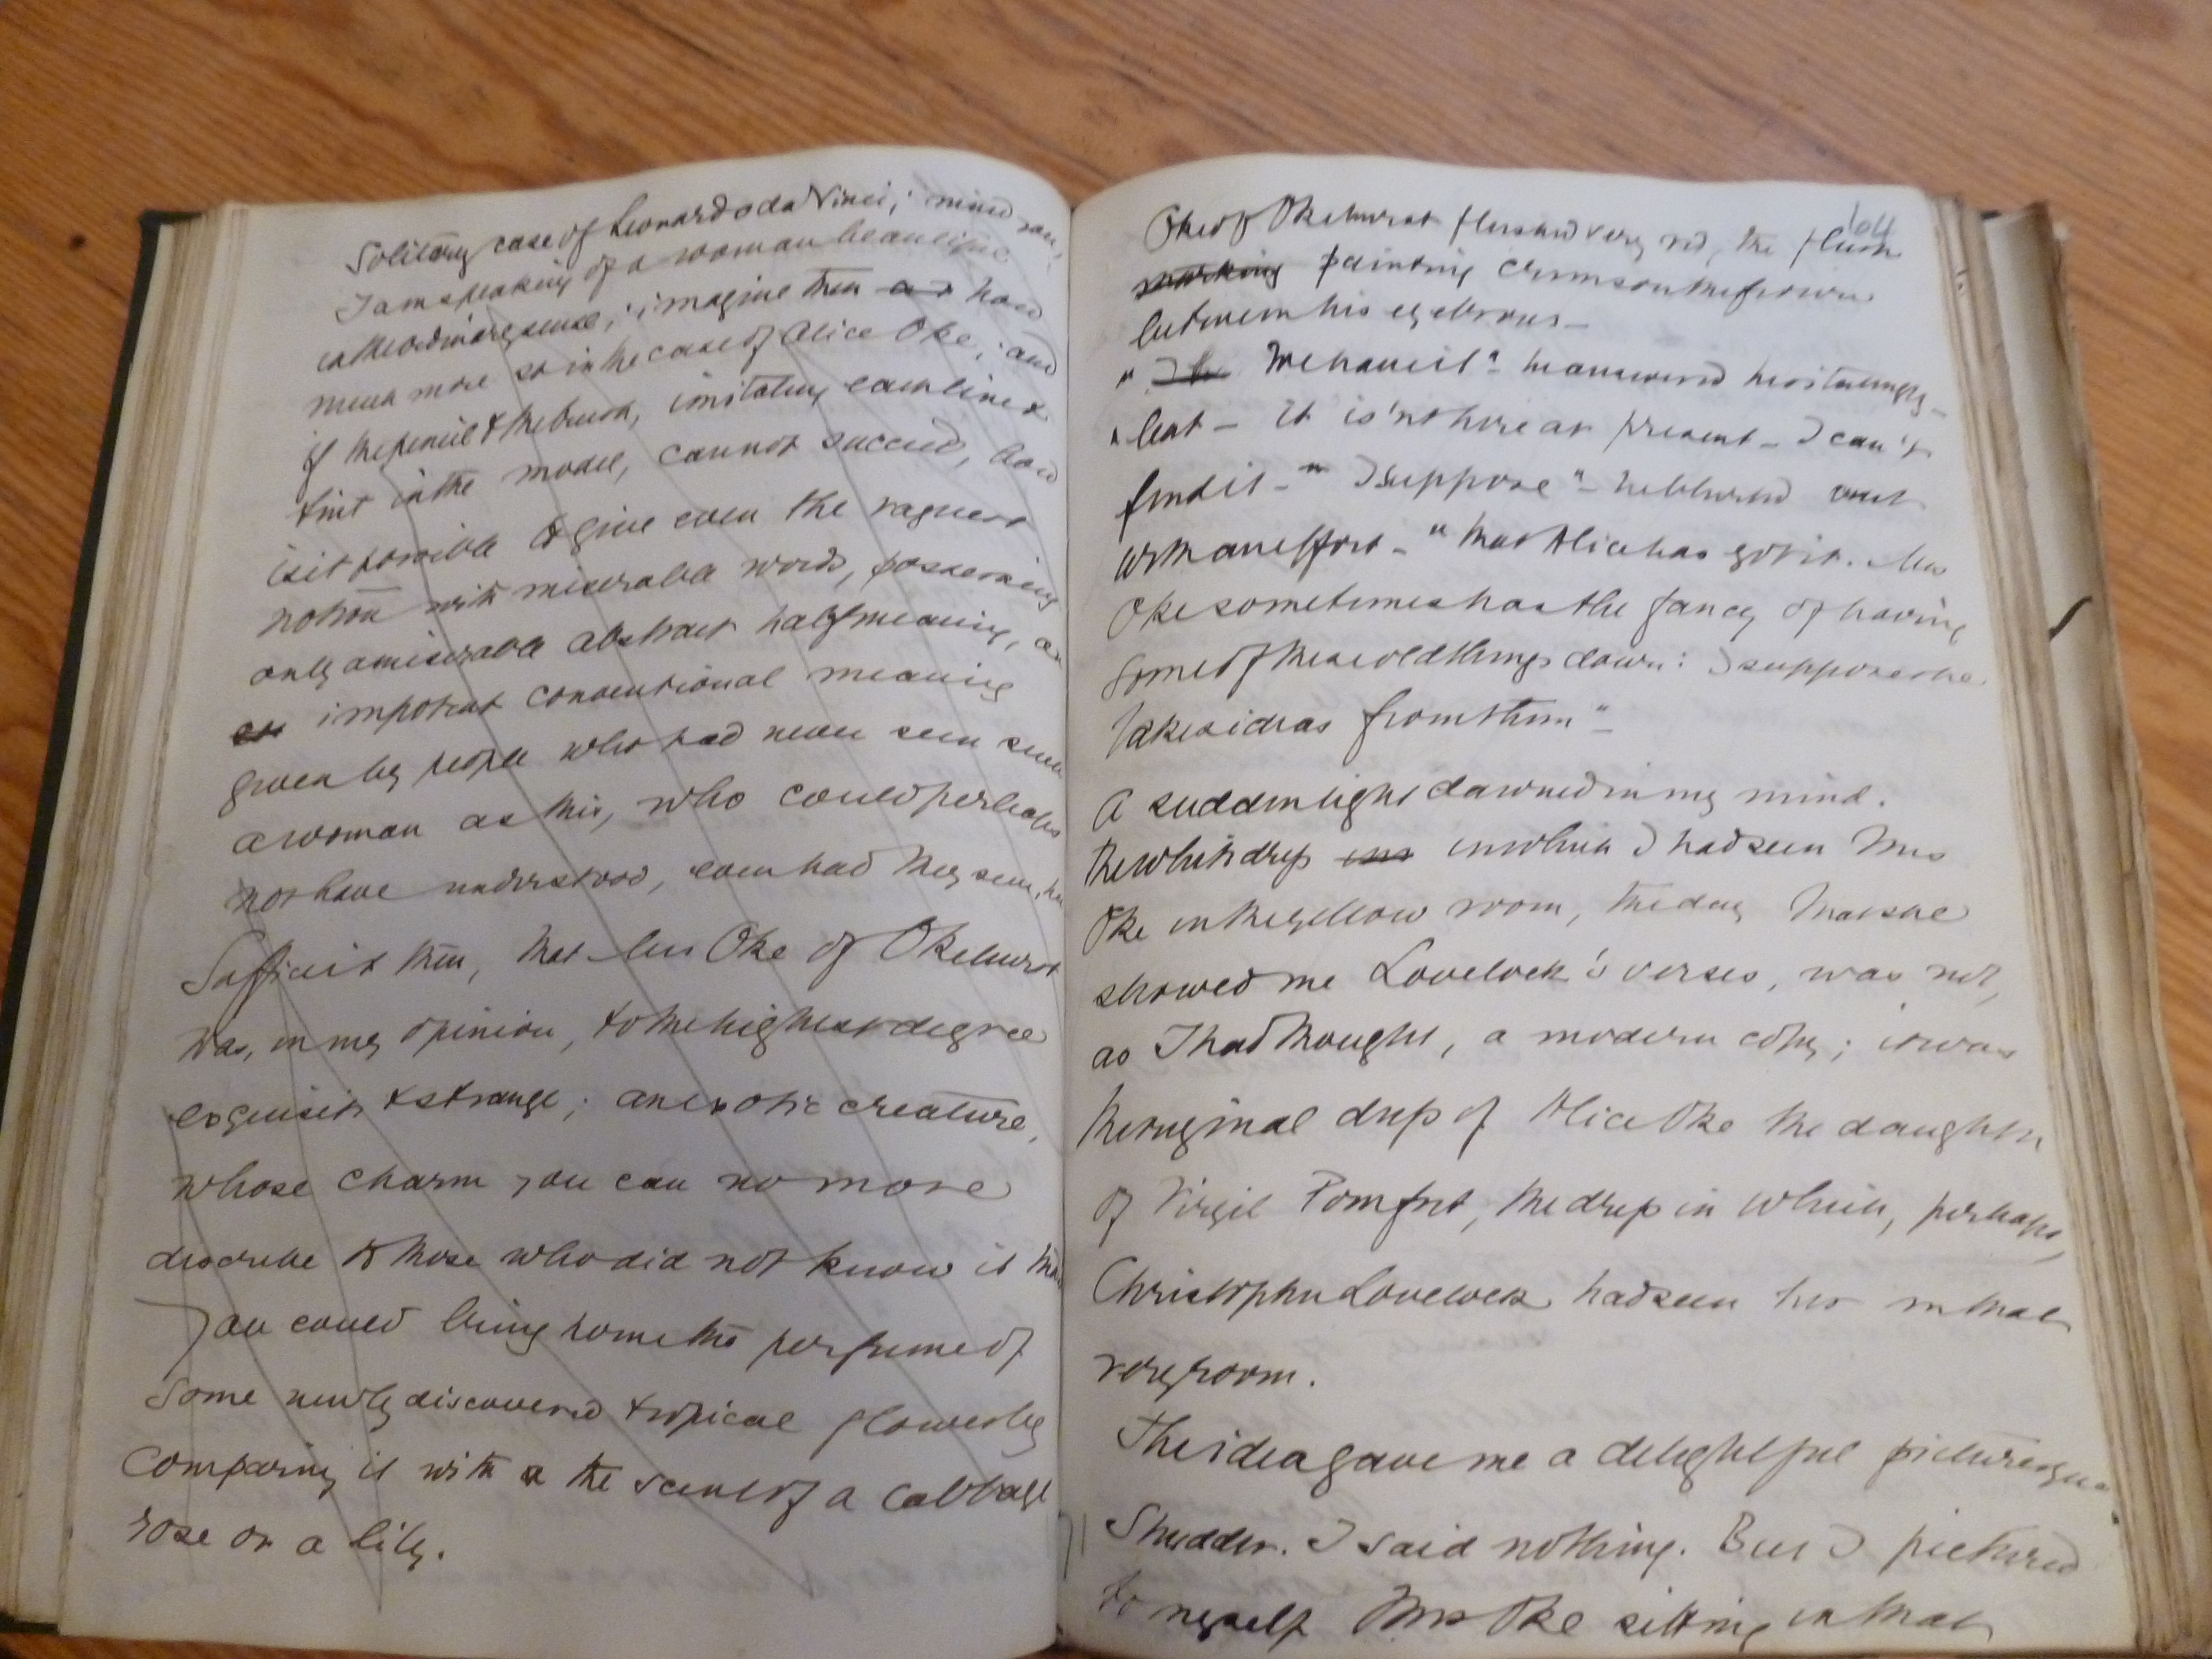 Solitary case of Leonardo da Vinci; mind you,
I am speaking of a woman beautiful
in the ordinary sense; imagine then how
much more so in the case of Alice Oke; and
if the pencil & the brush, imitating each line &
tint in the model, cannot succeed, how
is it possible to give even the vaguest
notion with miserable words, possessing
only a miserable abstract half meaning, an
impotent conventional meaning
given by people who had never seen such
a woman as this, who could perhaps
not have understood, even had they seen, her
Suffices it then, that Mrs Oke of Okehurst
was, in my opinion, to the highest degree
exquisite & strange; an exotic creature,
whose charm you can no more
describe to those who did not know it than
you could bring home the perfume of
some newly discovered tropical flower by
comparing it with the scent of a cabbage
rose or a lily.
104
Oke of Okehurst flushed very red, the flush
marking painting crimson the frown
between his eyebrows—
" We have it" - he answered hesitatingly -
" but - it is'nt here at present - I can't
find it - " I suppose" - he blurted out
with an effort - " that Alice has got it. Mrs
Oke sometimes has the fancy of having
some of these old things down: I suppose she
takes ideas from them" -
A sudden light dawned in my mind.
The white dress in which I had seen Mrs
Oke in the yellow room, the day that she
showed me Lovelock's verses, was not,
as I had thought, a modern copy; it was
the original dress of Alice Oke the daughter
of Virgil Pomfret, the dress in which, perhaps,
Christopher Lovelock had seen her in that
very room.
The idea gave me a delightful picturesque
Shudder. I said nothing. But I pictured
to myself Mrs Oke sitting in that